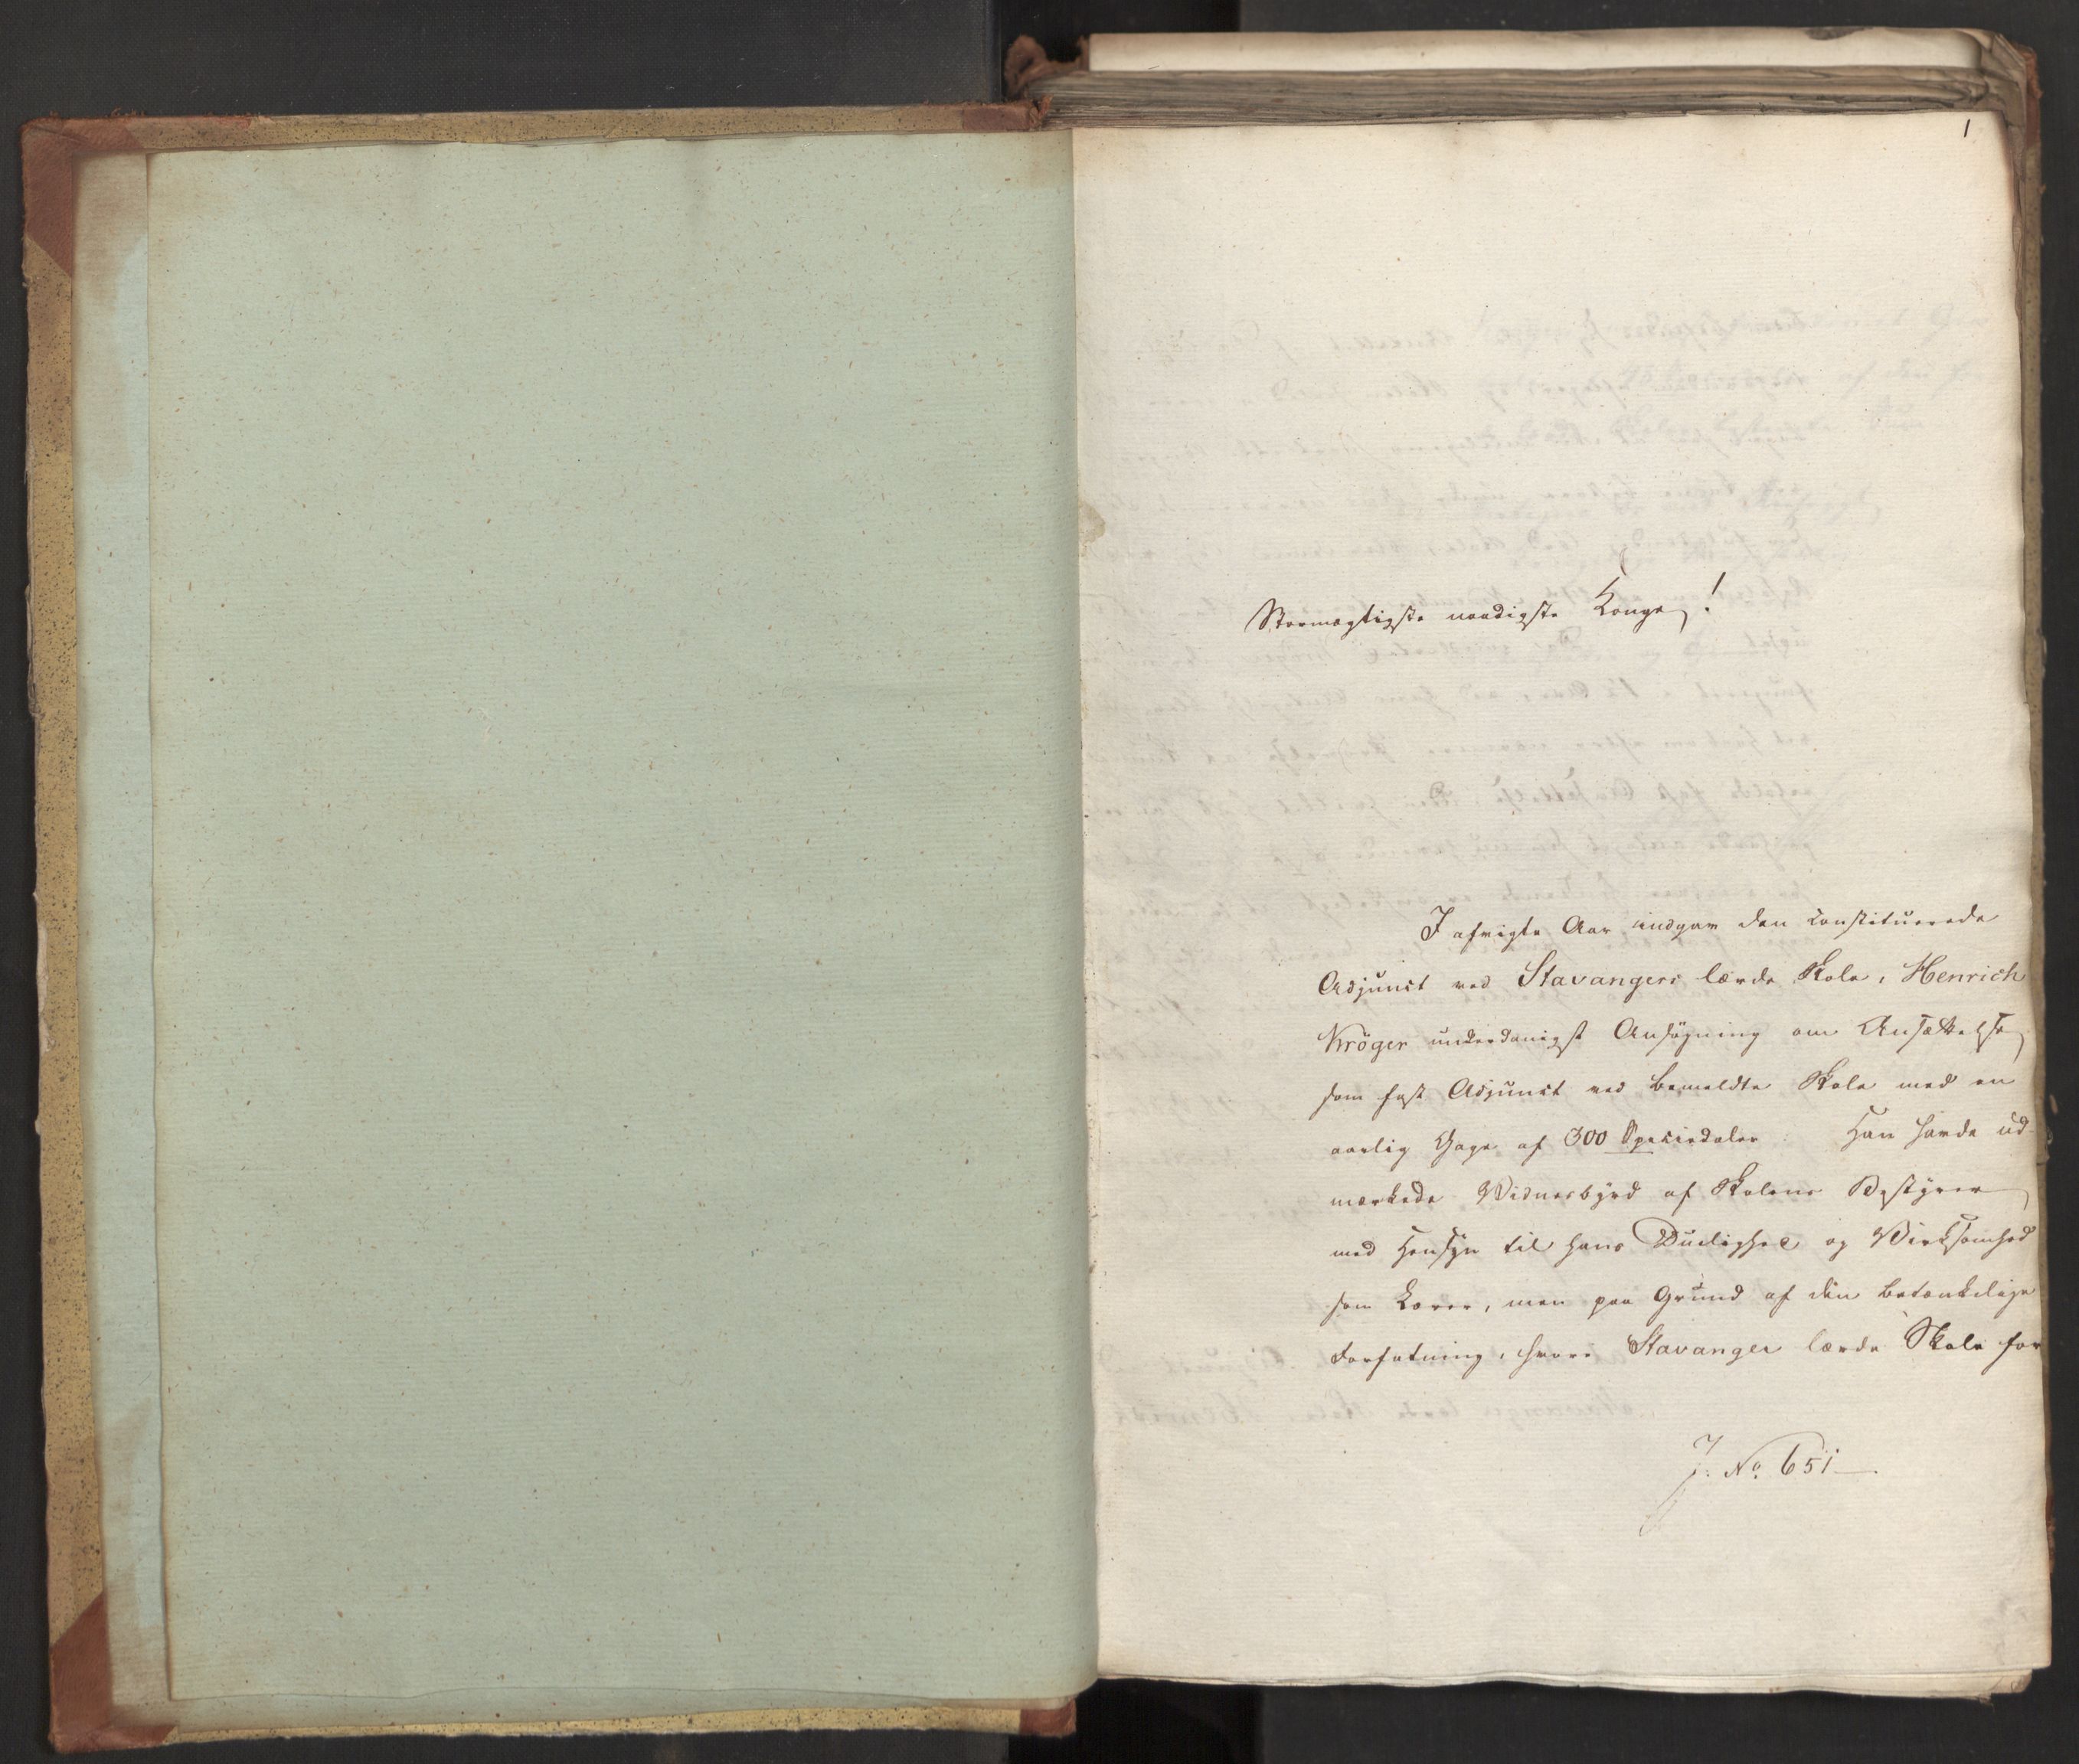 1
Stormægtigste naadigste Konge!
I afvigte Aar indgav den constituerede
Adjunct ved Stavangers lærde Skole, Henrich
Kröger underdanigst Ansøgning om Ansættelse
som fast Adjunct ved bemeldte Skole med en
aarlig Gage af 300 Speciedaler. Han havde ud-
mærkede Vidnesbyrd af Skolens Bestyrer
med Hensyn til hans Duelighed og Virksomhed
som Lærer, men paa Grund af den betænkelige
Forfatning, hvori Stavanger lærde Skole for
J. No. 651